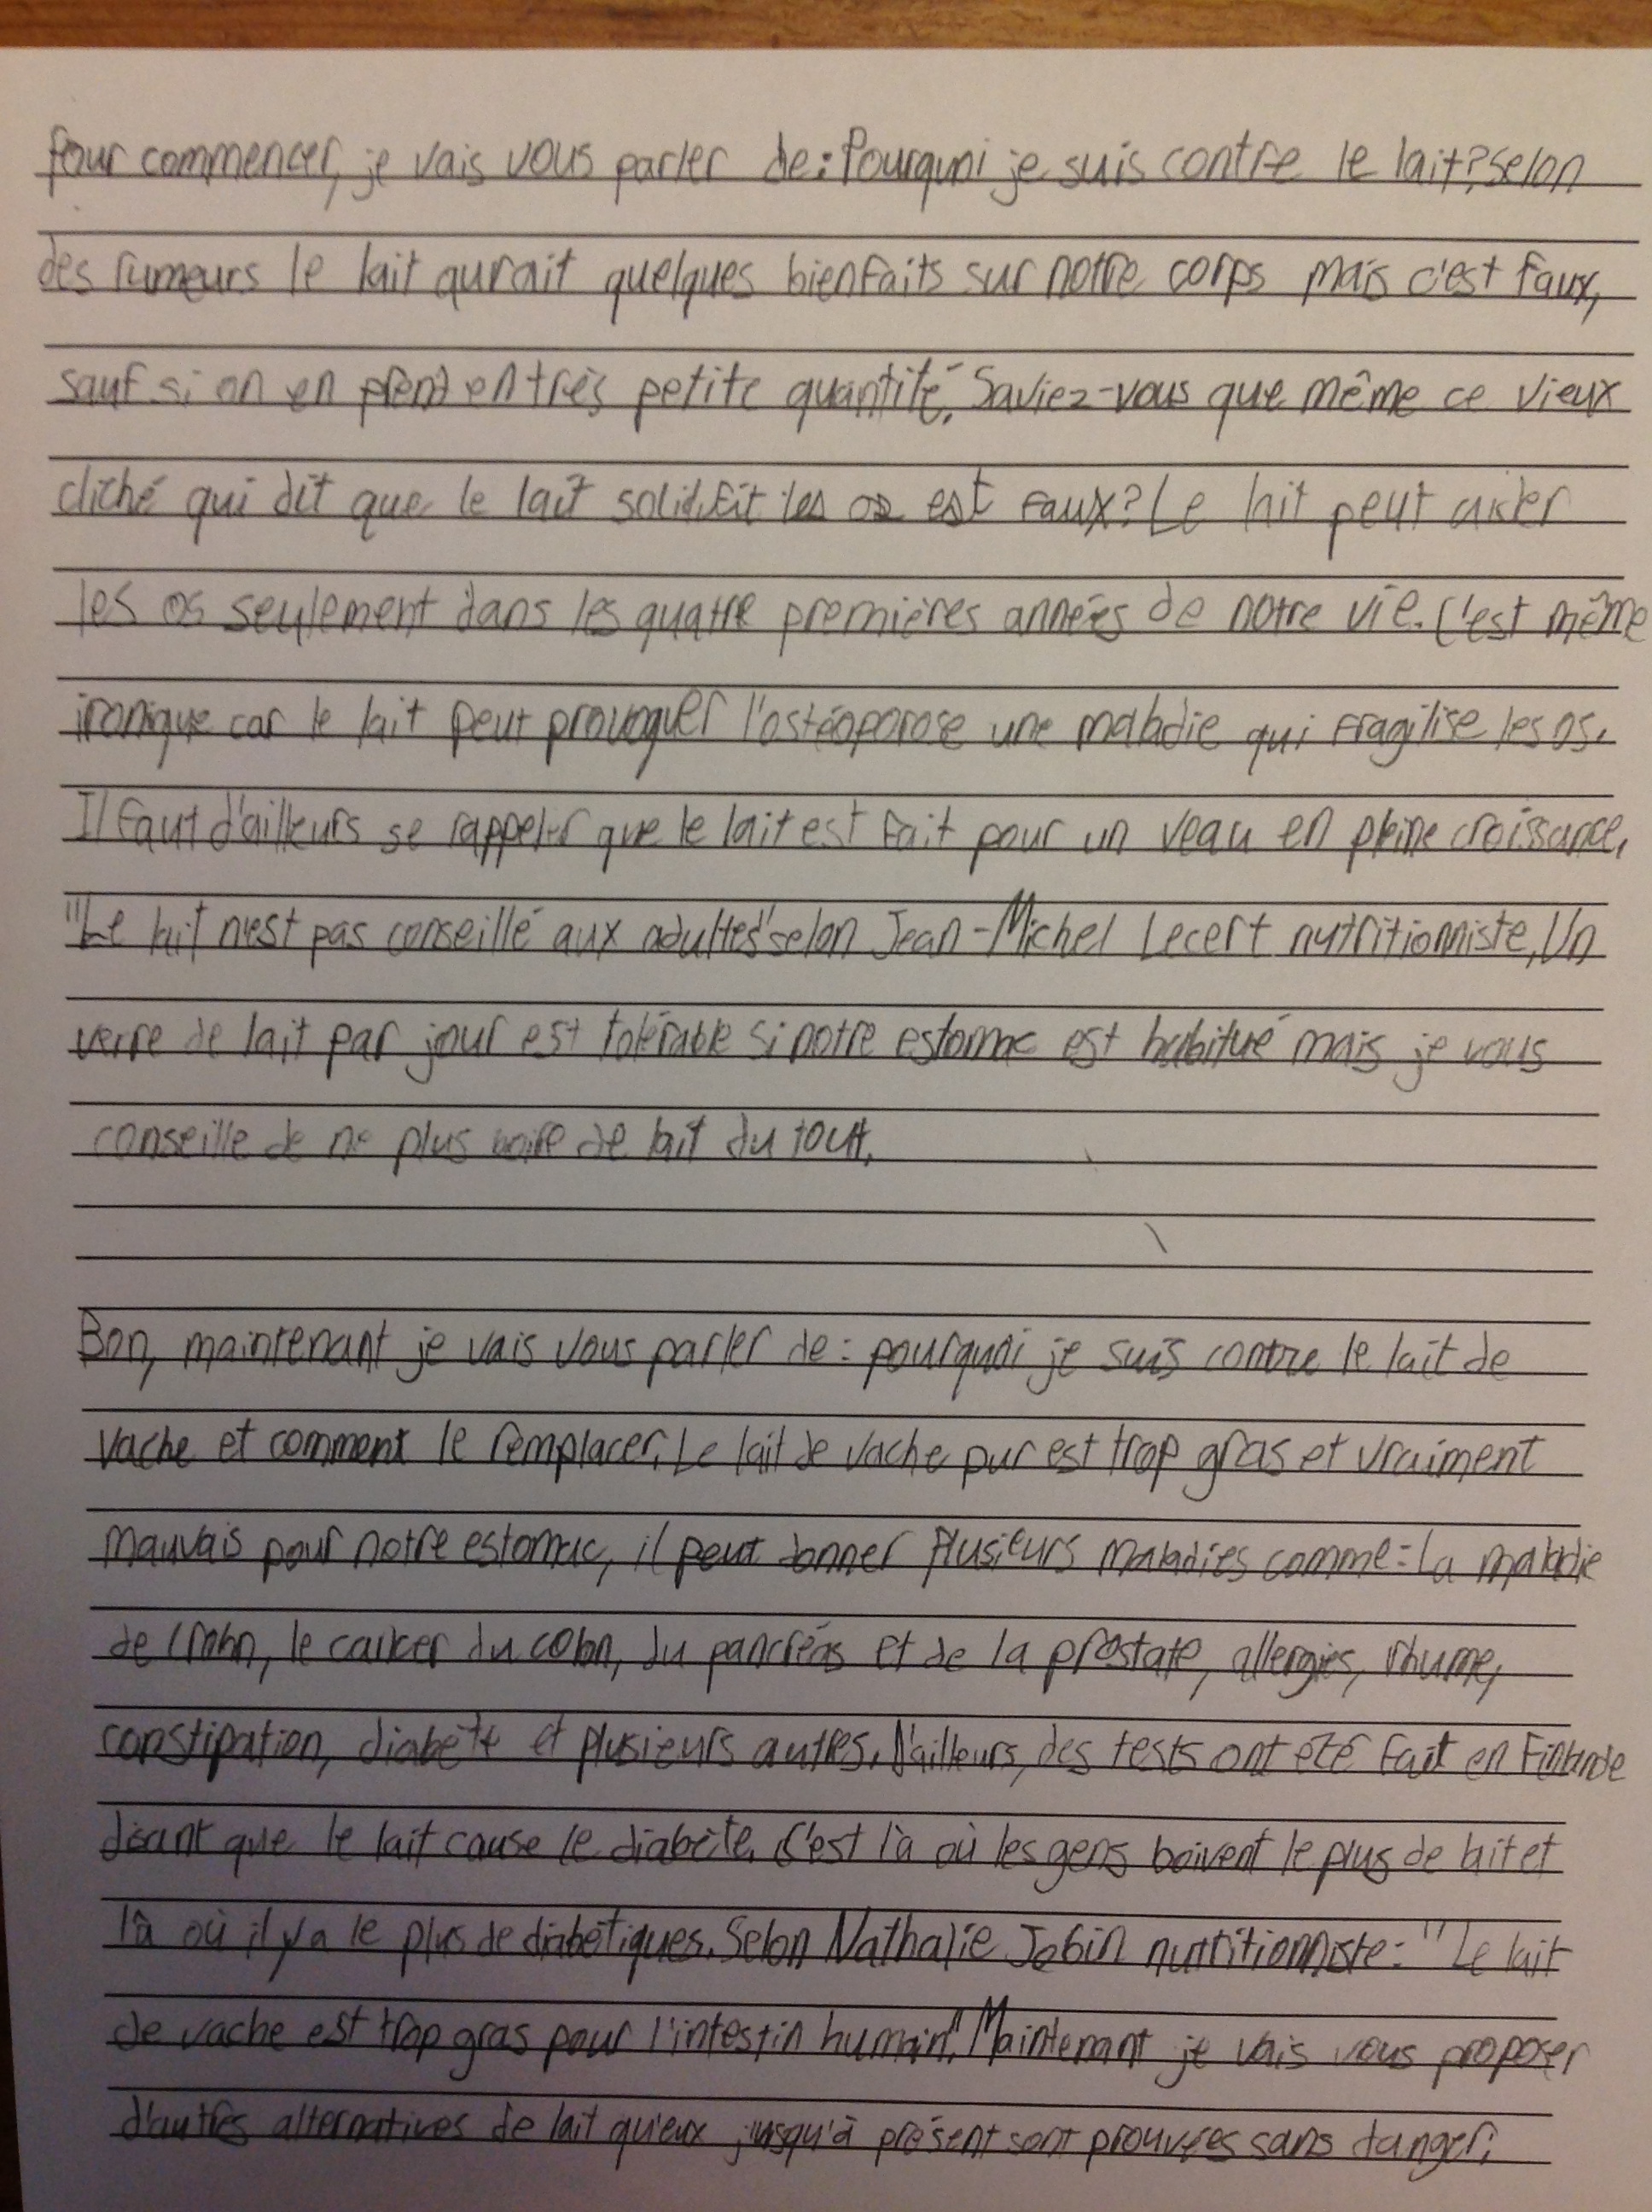 Pour commencer, je vais vous parler de: Pourquoi je suis contre le lait? Selon
des rumeurs le lait aurait quelques bienfaits sur notre corps mais c'est faux,
sauf si on en prend en très petite quantité. Saviez-vous que même ce vieux
cliché qui dit que le lait solidifit les os est faux? Le lait peut aider
les os seulement dans les quatre premières années de notre vie. C'est même
ironique car le lait peut provoquer l'ostéoporose une maladie qui fragilise les os.
Il faut d'ailleurs se rappeler que le lait est fait pour un veau en pleine croissance.
"Le lait n'est pas conseillé aux adultes" selon Jean-Michel Lecert nutritionniste. Un
verre de lait par jour est tolérable si notre estomac est habitué mais je vous
conseille de ne plus boire de lait du tout.
Bon, maintenant je vais vous parler de: pourquoi je suis contre le lait de
vache et comment le remplacer. Le lait de vache pur est trop gras et vraiment
mauvais pour notre estomac, il peut donner plusieurs maladies comme: La maladie
de Crohn, le cancer du colon, du pancréas et de la prostate, allergies, rhume,
constipation, diabète et plusieurs autres. D'ailleurs, des tests ont été fait en Finlande
disant que le lait cause le diabète. C'est là où les gens boivent le plus de lait et
là où il y a le plus de diabétiques. Selon Nathalie Jobin nutritionniste: "Le lait
de vache est trop gras pour l'intestin humain". Maintenant je vais vous proposer
d'autres alternatives de lait qu'eux jusqu'à présent sont prouvées sans danger: